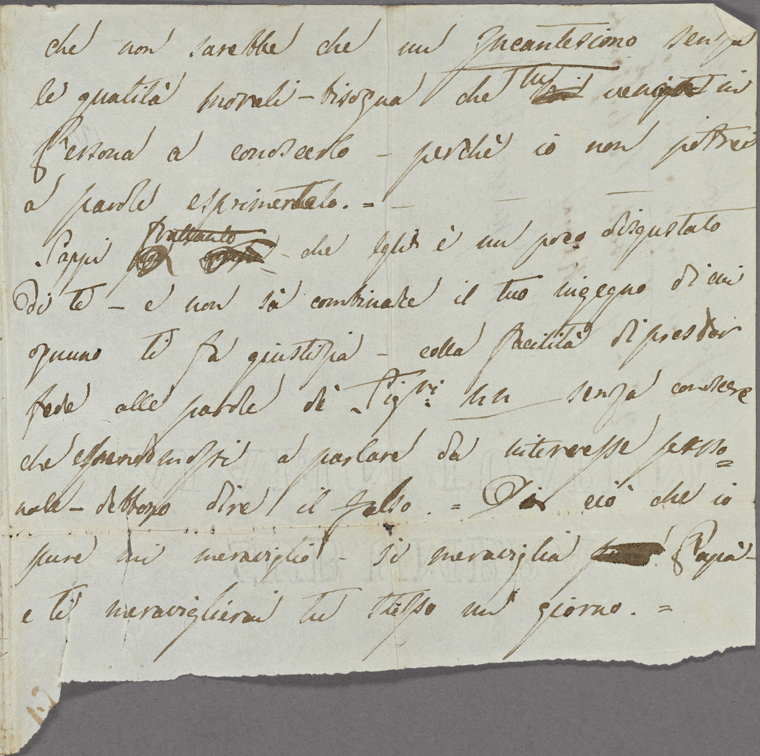 che non sarebbe che un Incantesimo senza
le qualità morali – bisogna che tu venga in
Persona a conoscerlo – perchè io non potrei
a parole esprimertelo. = –
Sappi frattanto – che Egli è un poco disgustato
di te – e non sà combinare il tuo ingegno di cui
ognuno ti fa giustizia – colla facilità di prestar
fede alle parole di Sig.ri nn senza conoscere
che essendo mossi a parlare da interesse perso=
nale – debbono dire il falso. = Di ciò che io
pure mi meraviglio – si meraviglia Papà –
e ti meraviglierai tu stesso un giorno. =